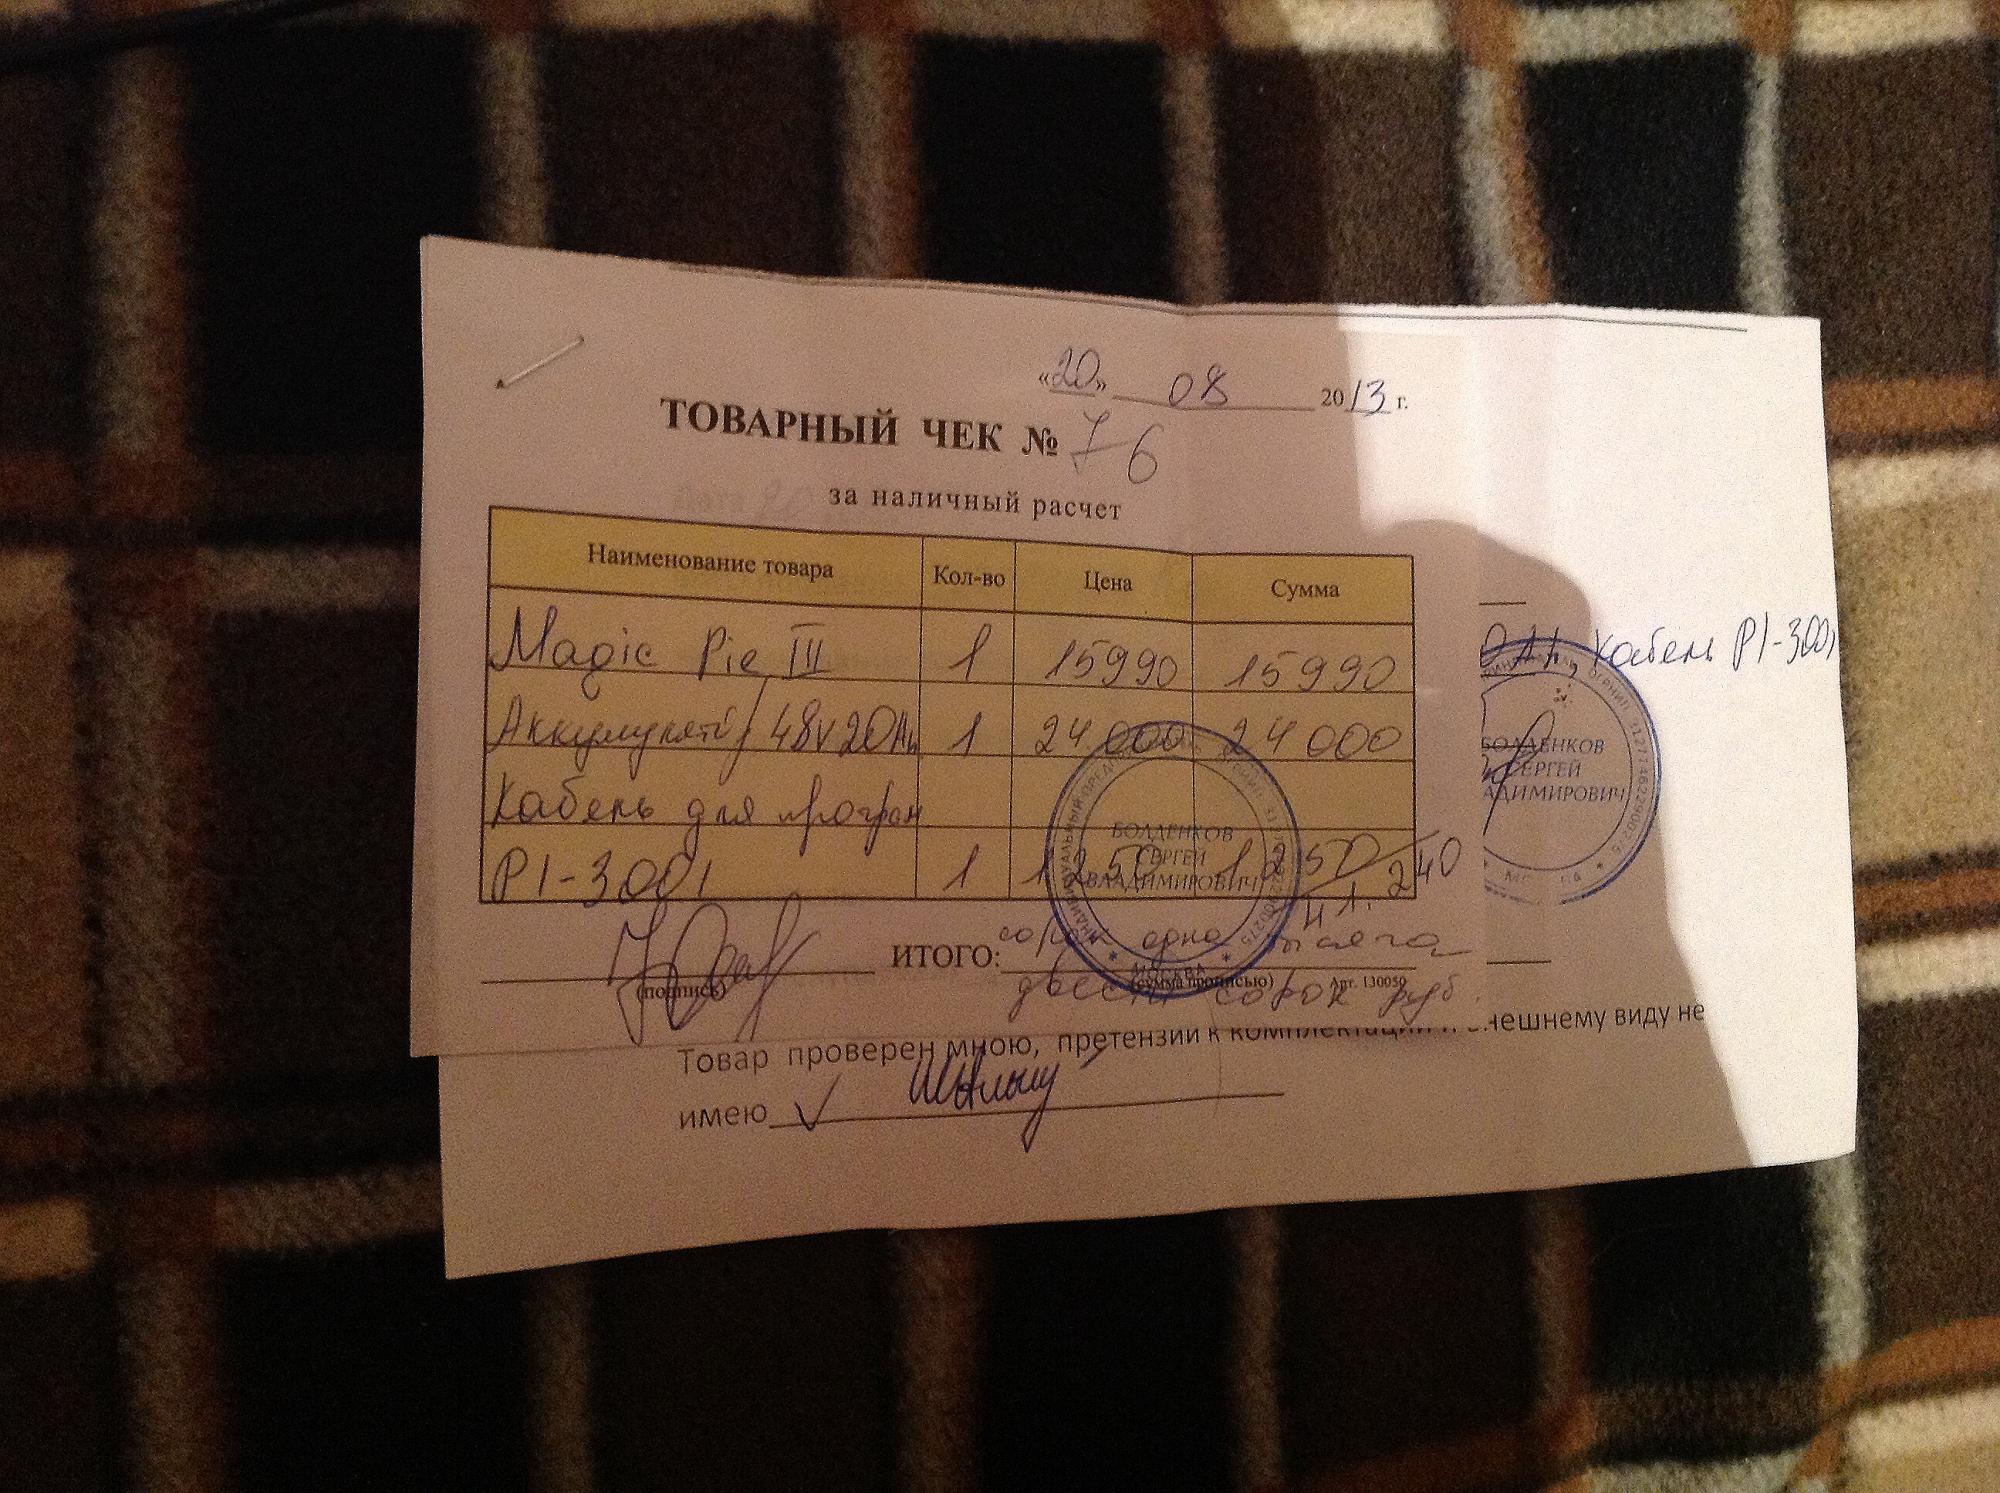 «20» 08 2013 г.
ТОВАРНЫЙ ЧЕК № 76
за наличный расчет
Наименование товара Кол-во Цена Сумма
Magic Pie III 1 15990 15990
48v20Ah 1 24000 24000
Кабель для програм
P1-3001 1 1250 1250
41.240
ИТОГО: сорок одна тысяча
двести сорок руб.
(подпись) (сумма прописью) Арт. 130050
БОЛДЕНКОВ
СЕРГЕЙ
ВЛАДИМИРОВИЧ
МОСКВА
Кабель P1-3001
БОЛДЕНКОВ
СЕРГЕЙ
ВЛАДИМИРОВИЧ
Товар проверен мною, претензии к комплектации и внешнему виду не
имею